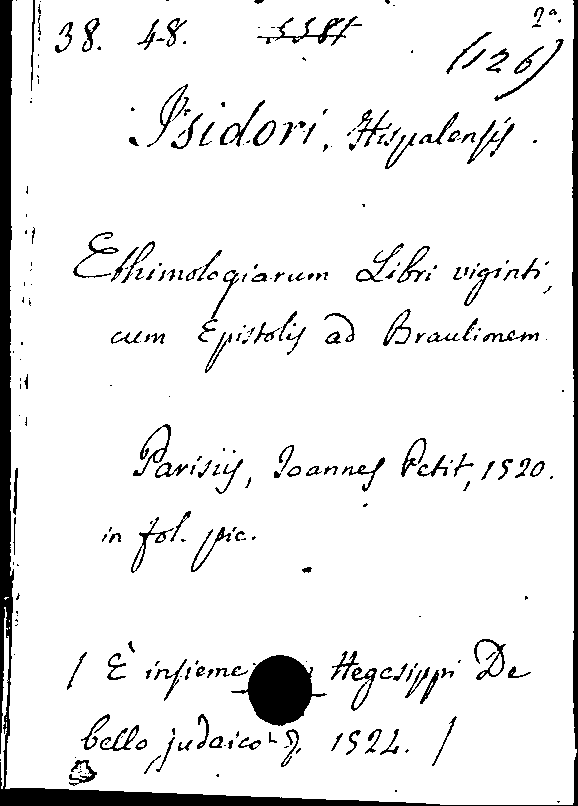 2ª.
38. 48. 5581
(126)
Isidori, Hispalensis.
Ethimologiarum Libri viginti,
cum Epistolis ad Braulionem
Parisiis, Joannes Petit, 1520.
in fol. pic.
/ È insieme Hegesippi De
bello judaico 1524. /